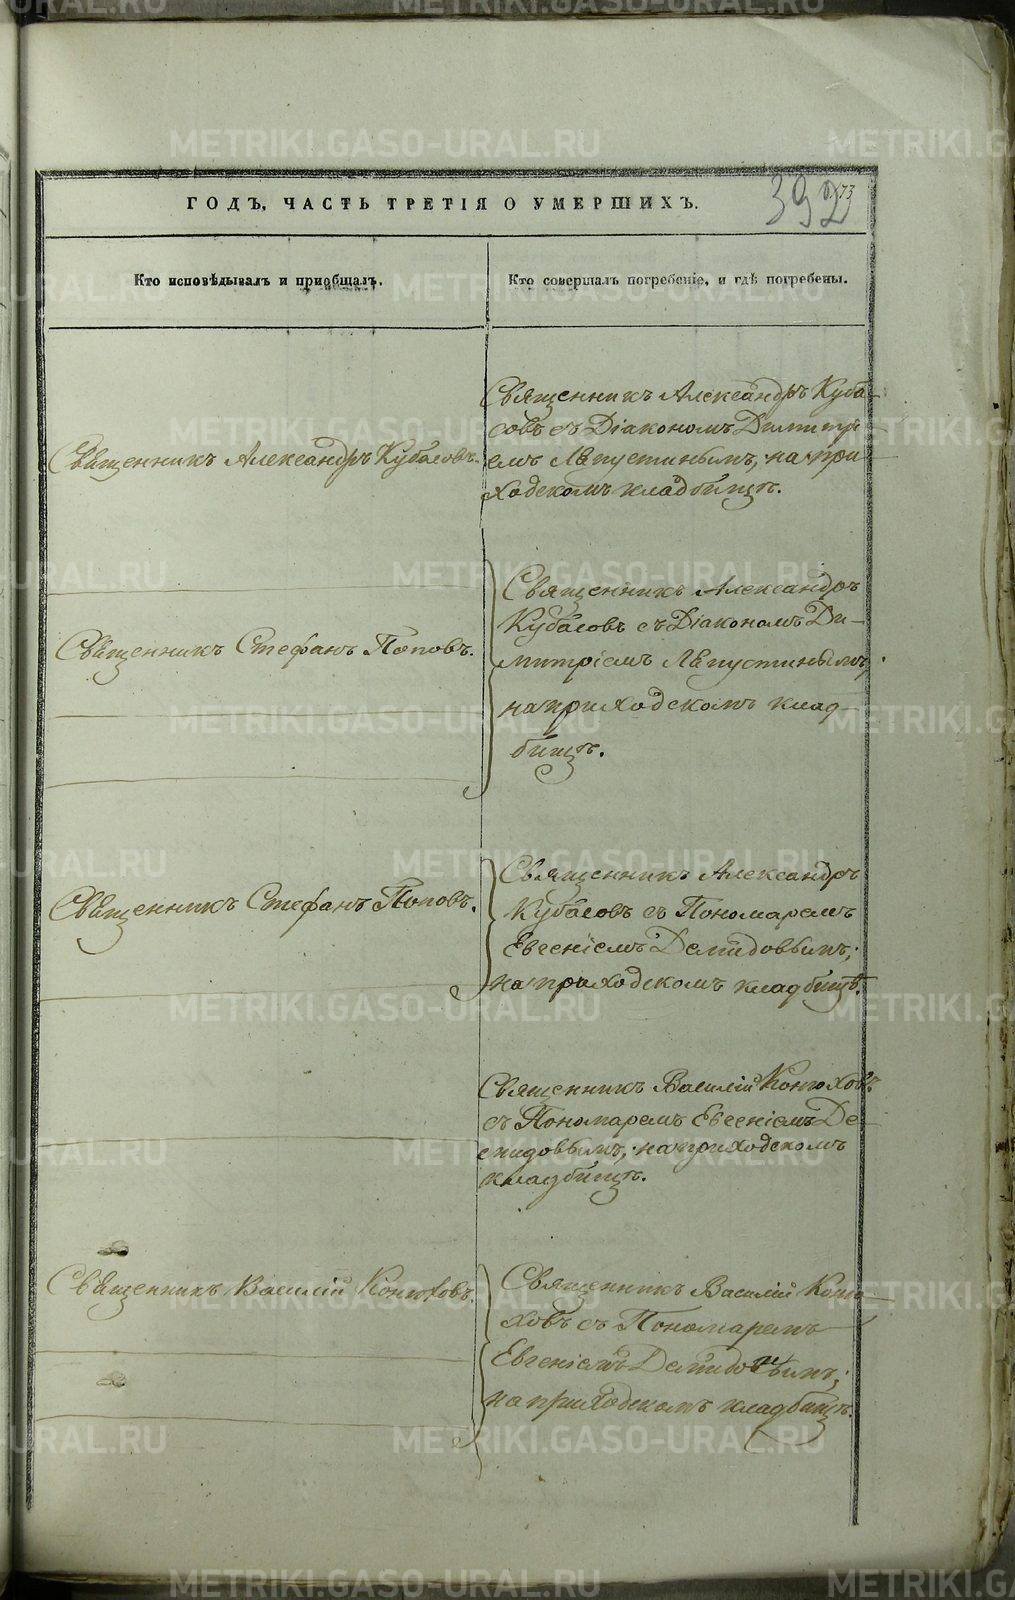 ГОДЪ, ЧАСТЬ ТРЕТІЯ О УМЕРШИХЪ.
392
73
Кто исповѣдывалъ и пріобщалъ.
Кто совершалъ погребеніе, и гдѣ погребены.
Священникъ Александръ Кубасовъ.
Священникъ Александръ Куба-
совъ съ Діакономъ Димитрі-
емъ Лапустинымъ, на при-
ходскомъ кладбищѣ.
Священникъ Стефанъ Поповъ.
Священникъ Александръ
Кубасовъ съ Діакономъ Ди-
митріемъ Лапустинымъ,
на приходскомъ клад-
бищѣ.
Священникъ Стефанъ Поповъ.
Священникъ Александръ
Кубасовъ съ Пономаремъ
Евгеніемъ Демидовымъ,
на приходскомъ кладбищѣ.
Священникъ Василій Конюховъ
съ Пономаремъ Евгеніемъ Де-
мидовымъ, на приходскомъ
кладбищѣ.
Священникъ Василій Конюховъ.
Священникъ Василій Коню-
ховъ съ Пономаремъ
Евгеніемъ Демидовымъ,
на приходскомъ кладбищѣ.
METRIKI.GASO-URAL.RU